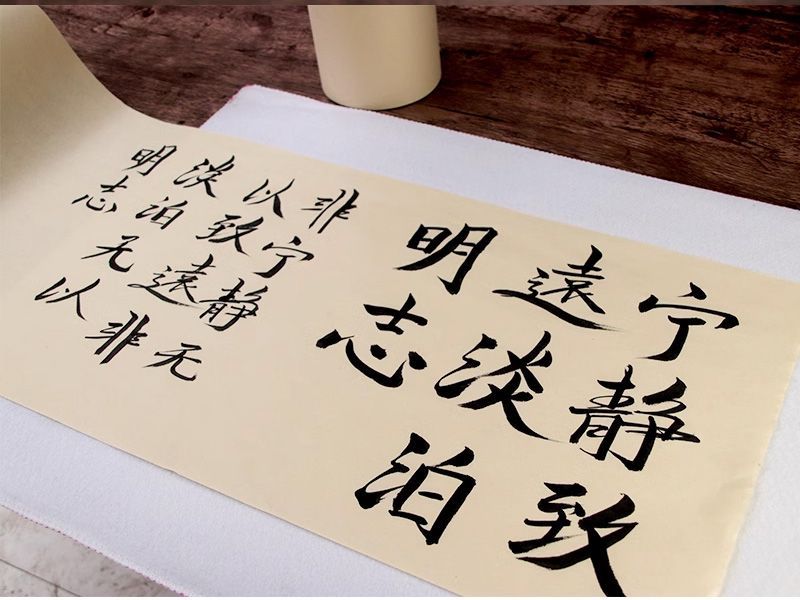 宁静致
遠淡泊
明志
非宁静无
以致遠非
淡泊无以
明志